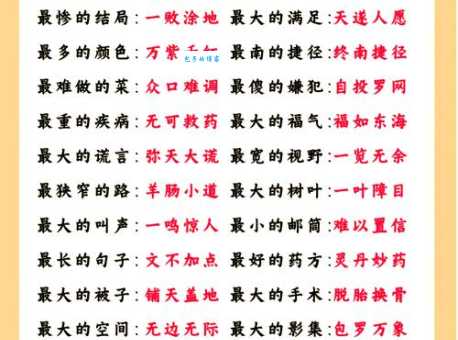 最惨的结局:一败涂地 最大的满足:天遂人愿
最多的颜色:万紫 最南的捷径:终南捷径
最难做的菜:众口难调 最傻的嫌犯:自投罗网
最重的疾病:无可救药 最大的福气:福如东海
最大的谎言:弥天大谎 最宽的视野:一览无余
最狭窄的路:羊肠小道 最大的树叶:一叶障目
最大的叫声:一鸣惊人 最小的邮筒:难以置信
最长的句子:文不加点 最好的药方:灵丹妙药
最大的被子:铺天盖地 最大的手术:脱胎换骨
最大的空间:无边无际 最大的影集:包罗万象